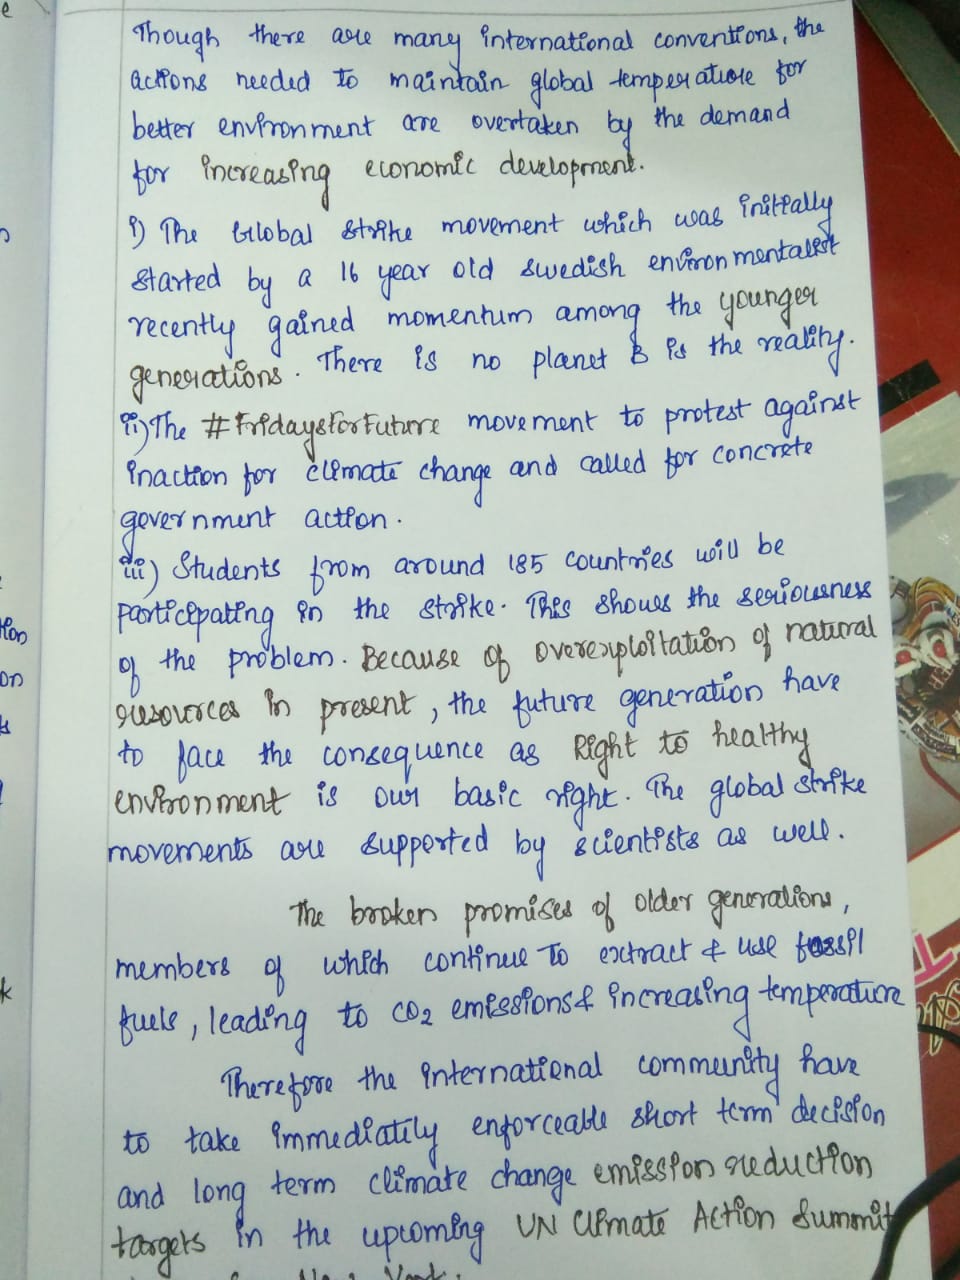 Though there are many international conventions, the
actions needed to maintain global temperature for
better environment are overtaken by the demand
for increasing economic development.
i) The Global Strike movement which was initially
started by a 16 year old Swedish environmentalist
recently gained momentum among the younger
generations. There is no planet B is the reality.
ii) The #FridaysForFuture movement to protest against
inaction for climate change and called for concrete
government action.
iii) Students from around 185 countries will be
participating in the strike. This shows the seriousness
of the problem. Because of overexploitation of natural
resources in present, the future generation have
to face the consequence as Right to healthy
environment is our basic right. The global strike
movements are supported by scientists as well.
The broken promises of older generations,
members of which continue to extract & use fossil
fuels, leading to CO2 emissions & increasing temperature
Therefore the international community have
to take immediately enforceable short term decision
and long term climate change emission reduction
targets in the upcoming UN Climate Action Summit
New York.